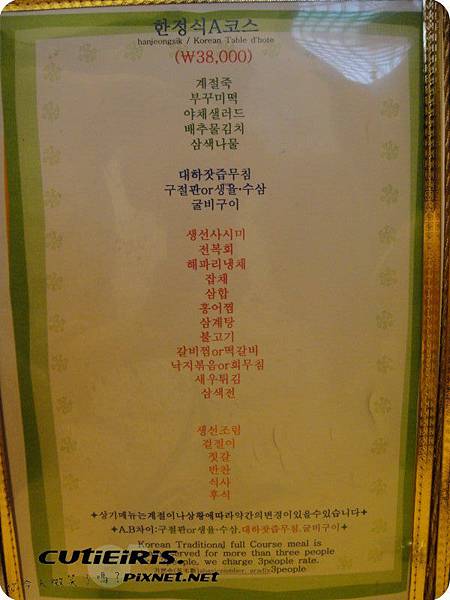 한정식A코스
hanjeongsik / Korean Table d'hote
(₩38,000)
계절죽
부꾸미떡
야채샐러드
배추물김치
삼색나물
대하잣즙무침
구절판or생율·수삼
굴비구이
생선사시미
전복회
해파리냉채
잡채
삼합
홍어찜
삼계탕
불고기
갈비찜or떡갈비
낙지볶음or회무침
새우튀김
삼색전
생선조림
겉절이
젓갈
반찬
식사
후식
✦상기메뉴는계절이나상황에따라약간의변경이있을수있습니다✦
✦A,B차이:구절판or생율·수삼,대하잣즙무침,굴비구이✦
Korean Traditional full Course meal is
served for more than three people
people, we charge 3people rate.
3people
CUTIEIRIS.
PIXNET.NET